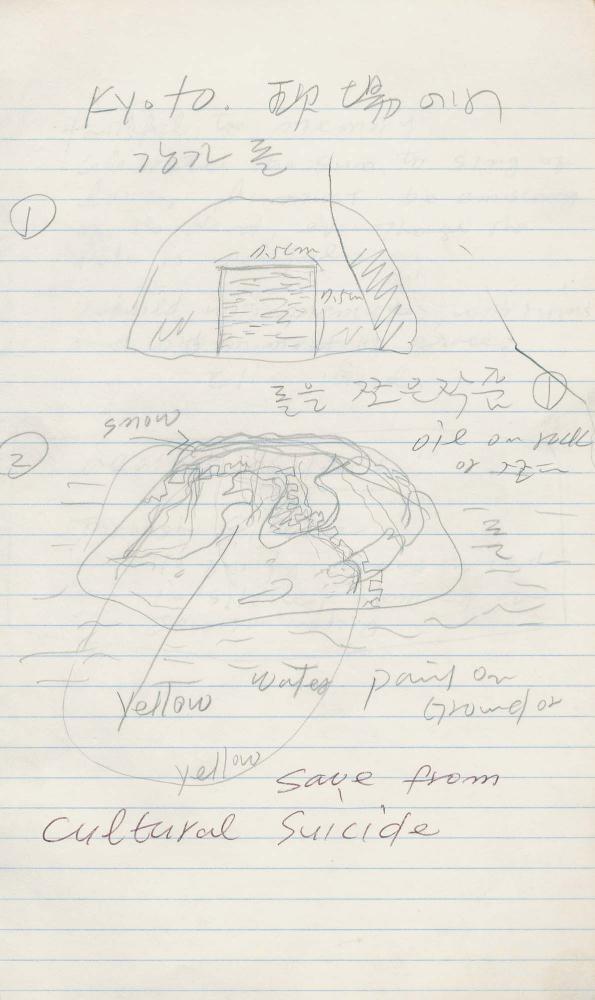 Kyoto. 現場에서
강가 돌
①
0.5cm
0.5cm
돌을 쪼은작품 ①
snow
oil on rock
or
②
돌
yellow water paint on
Ground or
yellow
save from
Cultural Suicide